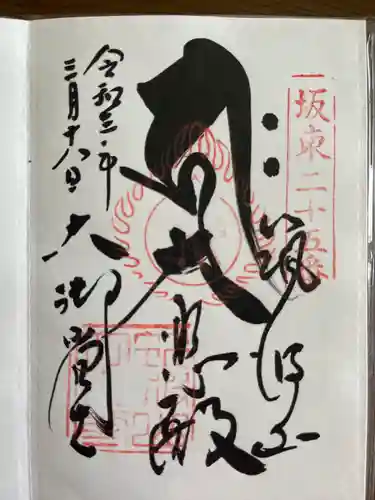 坂東二十五番
筑波山
悲心殿
大御堂
令和三年
三月十八日